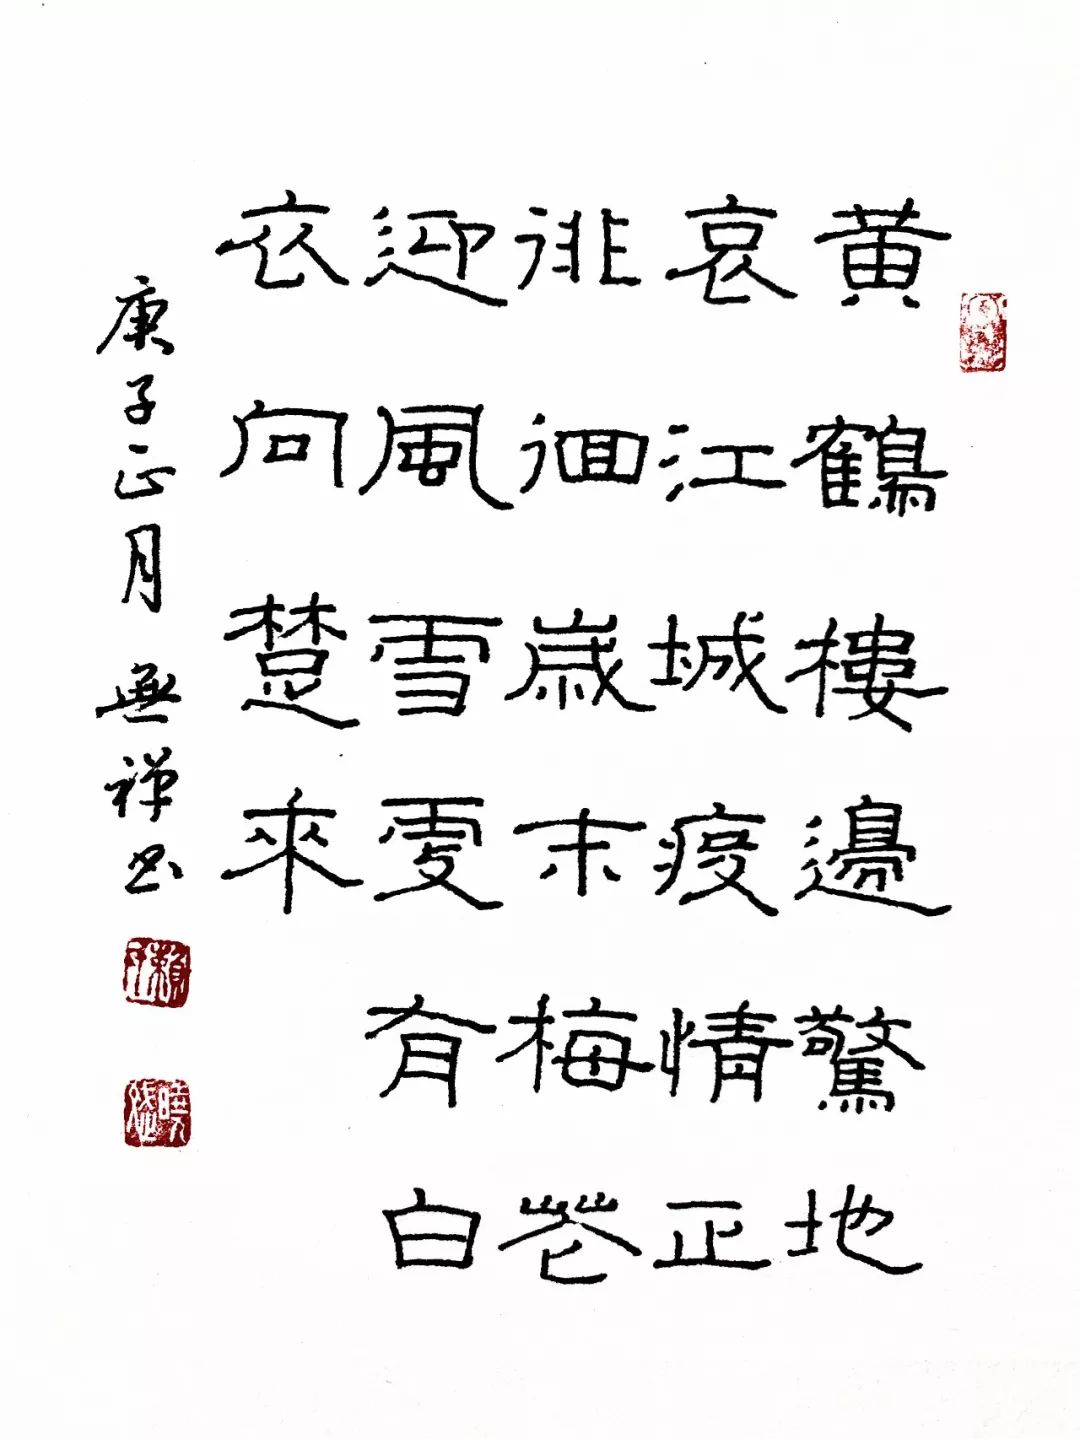 黃鶴樓邊驚地
哀江城疫情正
徘徊歲末梅花
迎風雪更有白
衣向楚來
庚子正月 無禪書